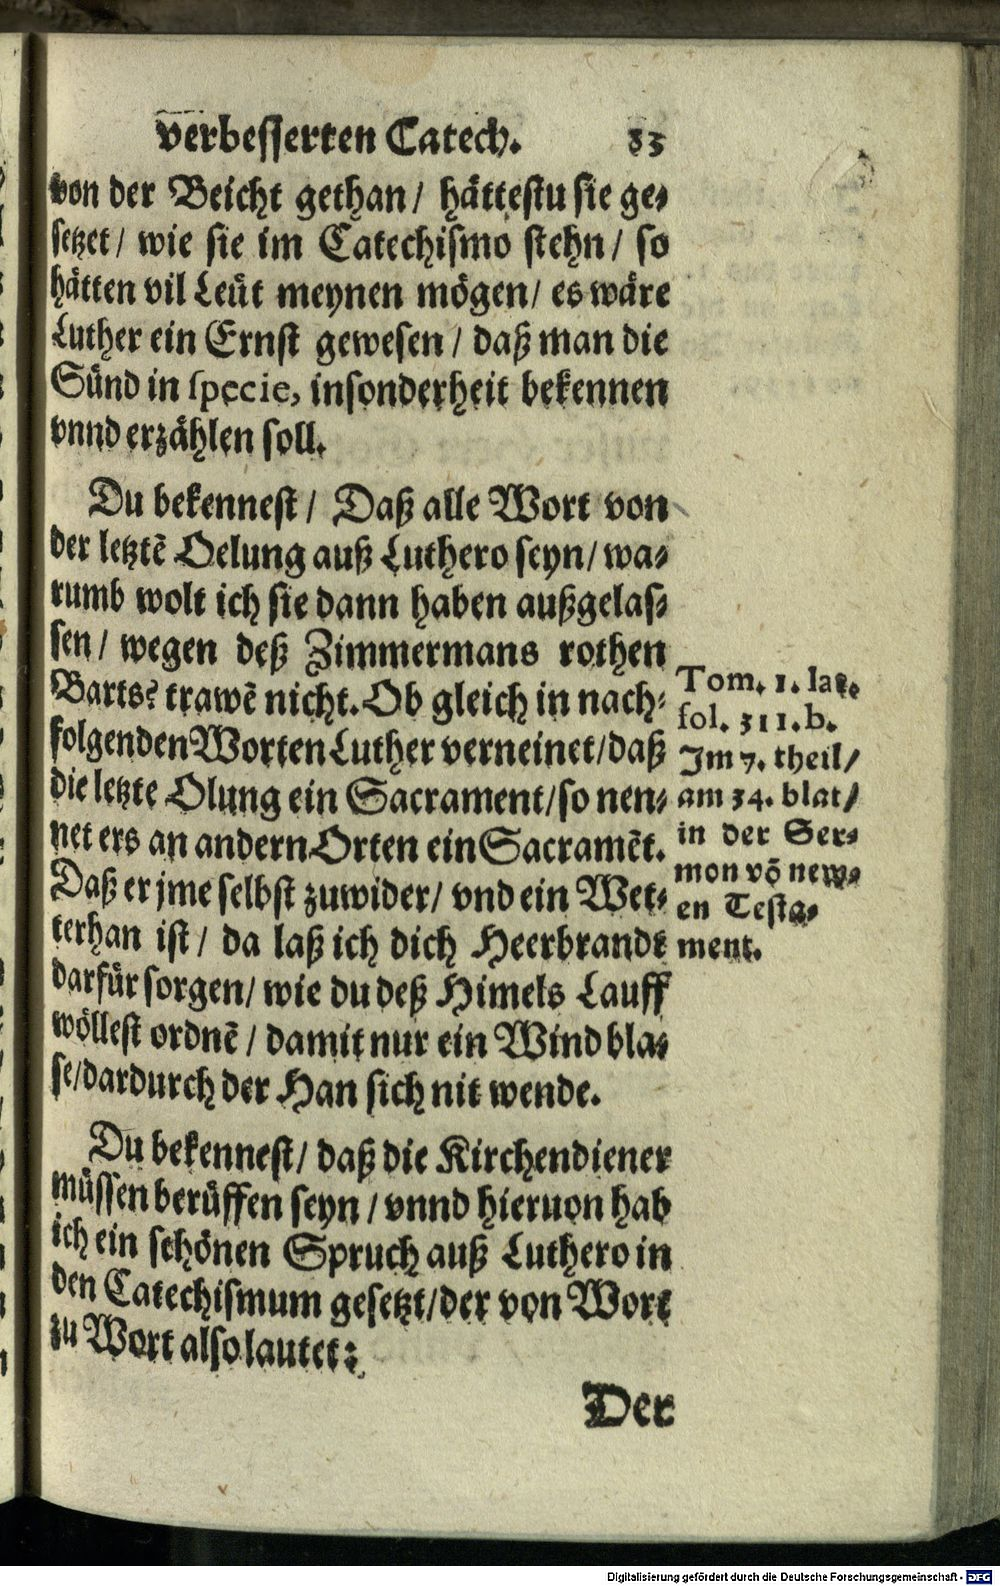 verbesserten Catech. 83
von der Beicht gethan/ hättestu sie ge-
setzet/ wie sie im Catechismo stehn/ so
hätten vil Leüt meynen mögen/ es wäre
Luther ein Ernst gewesen/ daß man die
Sünd in specie, insonderheit bekennen
vnnd erzählen soll.
Du bekennest/ Daß alle Wort von
der letztẽ Oelung auß Luthero seyn/ wa-
rumb wolt ich sie dann haben außgelas-
sen/ wegen deß Zimmermans rothen
Barts? trawẽ nicht. Ob gleich in nach-
folgenden Worten Luther verneinet/daß
die letzte Olung ein Sacrament/so nen-
net ers an andern Orten ein Sacramẽt.
Daß er jme selbst zuwider/ vnd ein Wet-
terhan ist/ da laß ich dich Heerbrandt
darfür sorgen/ wie du deß Himels Lauff
wöllest ordnẽ/ damit nur ein Wind bla-
se/dardurch der Han sich nit wende.
Tom. 1. lat.
fol. 311.b.
Im 7. theil/
am 34. blat/
in der Ser-
mon võ new-
en Testa-
ment.
Du bekennest/ daß die Kirchendiener
müssen berüffen seyn/ vnnd hieruon hab
ich ein schönen Spruch auß Luthero in
den Catechismum gesetzt/der von Wort
zu Wort also lautet:
Der
Digitalisierung gefördert durch die Deutsche Forschungsgemeinschaft - DFG